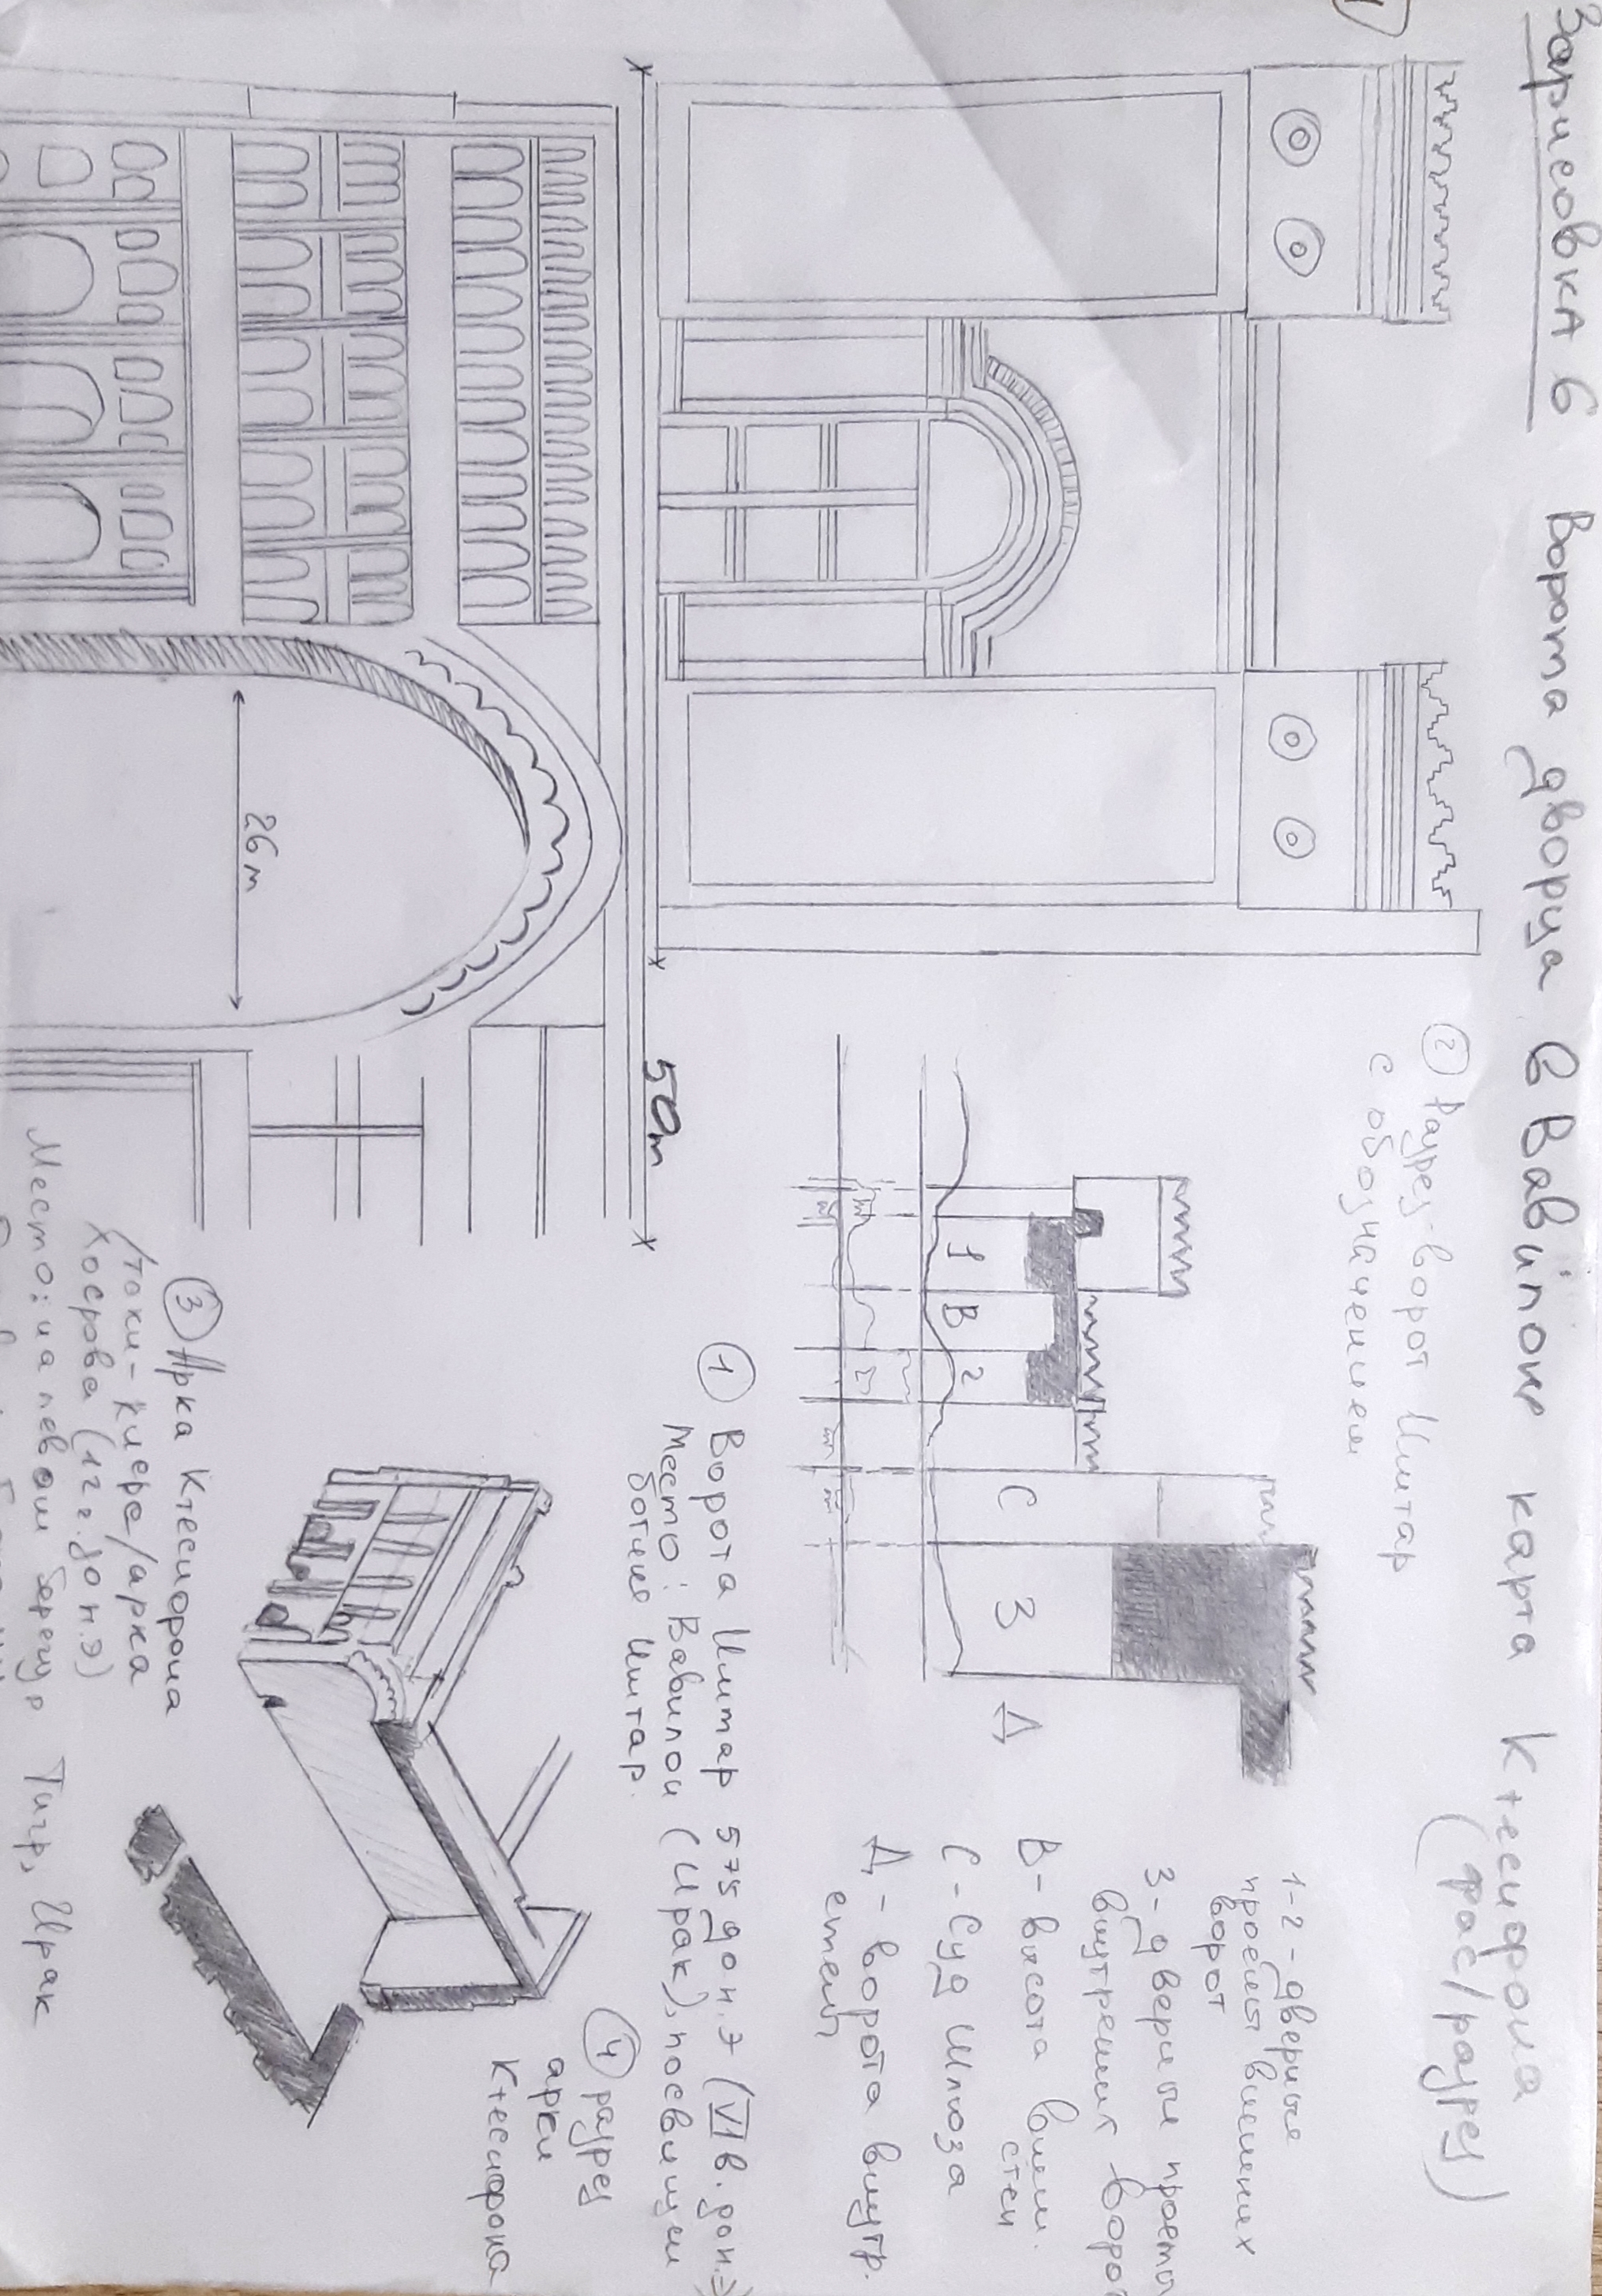 Зарисовка 6 Ворота дворца в Вавилоне карта Ктесифона
(фас/разрез)
② Разрез ворот Иштар
с обозначением
1
В
2
С
3
Д
1-2 - дверные
проемы внешних
ворот
3 - дверные проемы
внутренних ворот
В - высота внешн.
стен
С - Суд Шлюза
Д - ворота внутр.
стены
50m
① Ворота Иштар 575 до н.э (VI в. до н.э)
Место: Вавилон (Ирак), посвящен
богине Иштар.
26m
③ Арка Ктесифона
/токи-кисра/арка
Хосрова (12 г. до н.э)
Место: на левом берегу р Тигр, Ирак
④ разрез
арки
Ктесифона